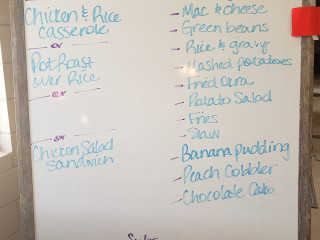 Chicken & Rice
casserole
or
Pot Roast
over Rice
or
or
Chicken Salad
Sandwich
- Mac & cheese
- Green beans
- Rice & gravy
- Mashed potatoes
- Fried Okra
- Potato Salad
- Fries
- Slaw
- Banana pudding
- Peach Cobbler
- Chocolate Cake